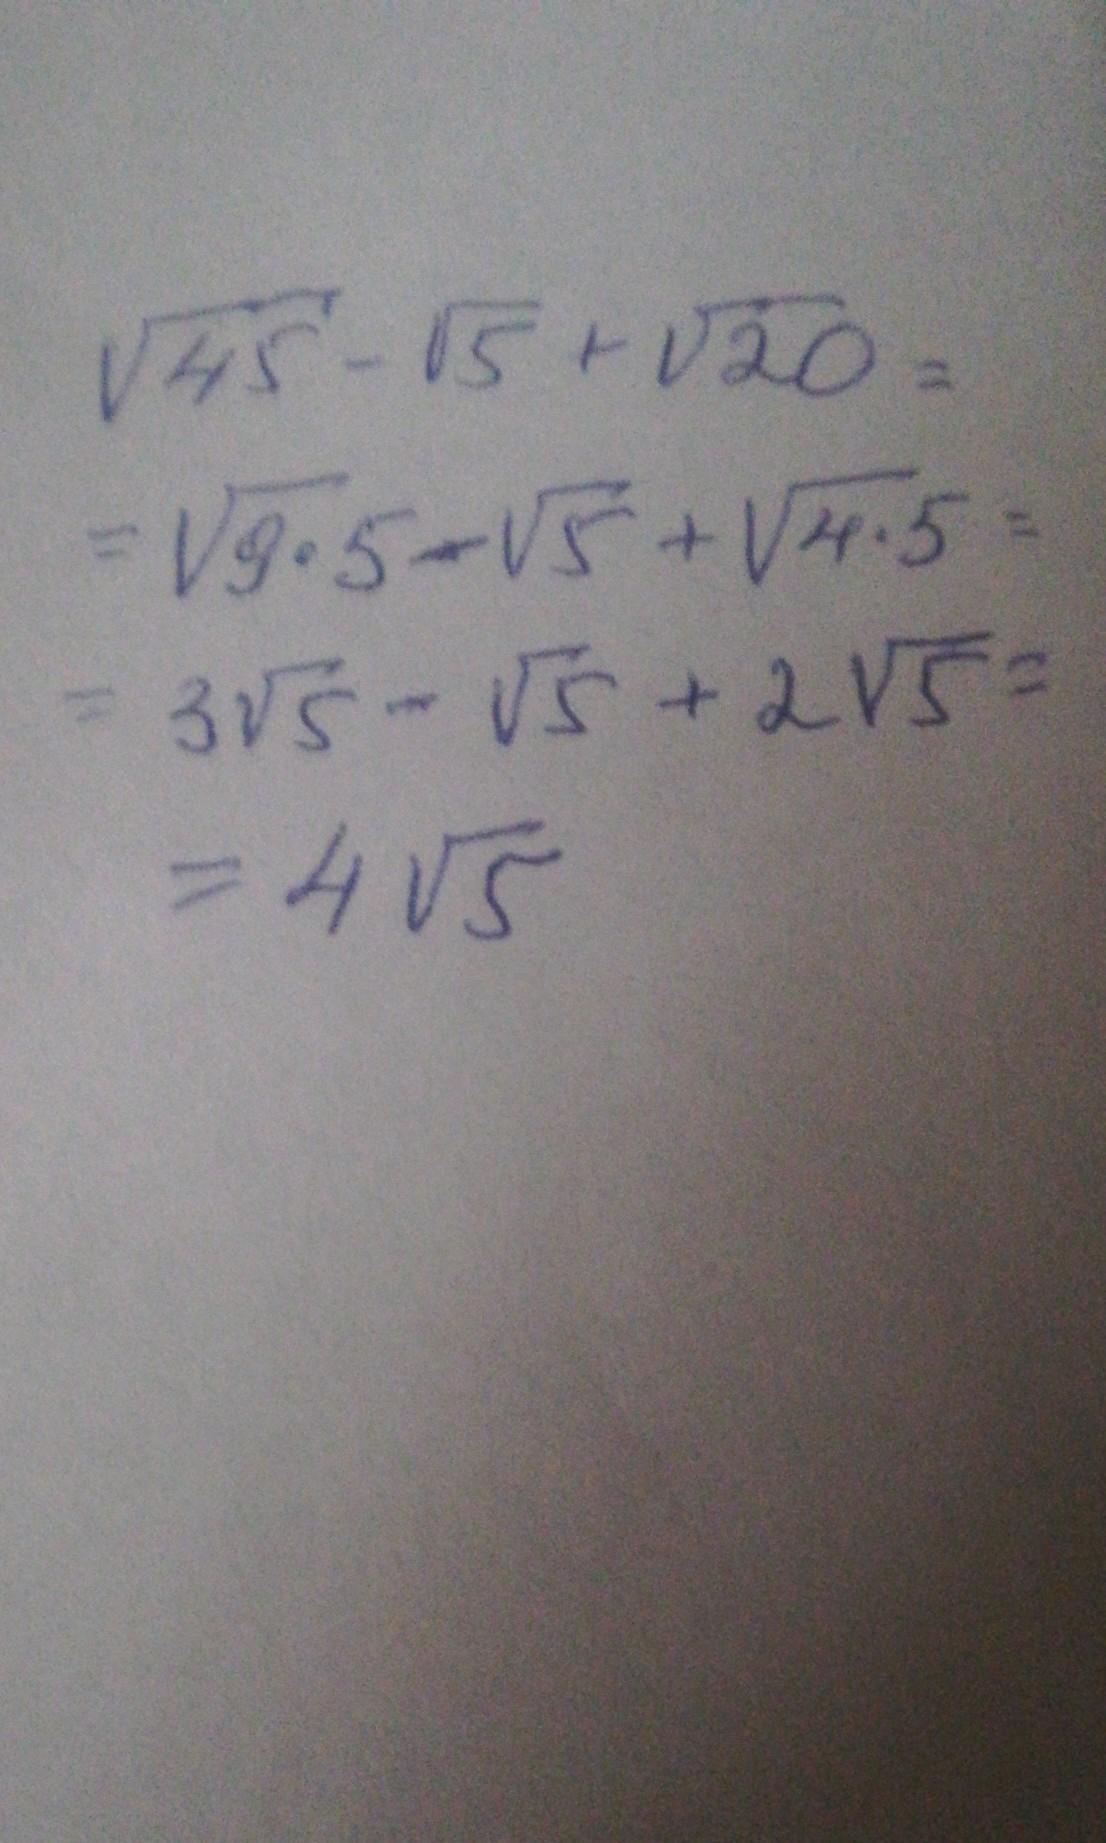 √45 - √5 + √20 =
= √9·5 - √5 + √4·5 =
= 3√5 - √5 + 2√5 =
= 4√5